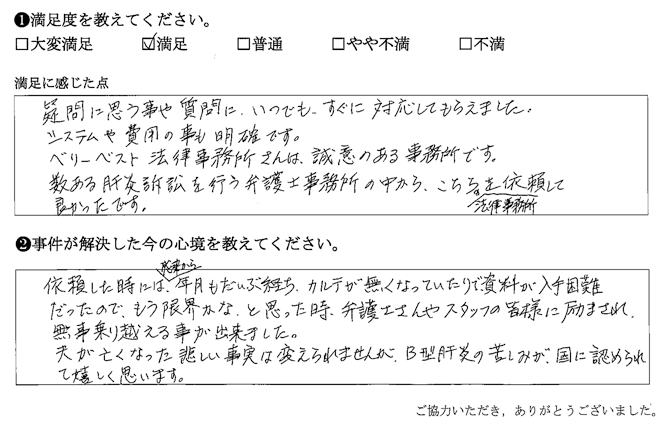 ❶満足度を教えてください。
□大変満足 ☑満足 □普通 □やや不満 □不満
満足に感じた点
疑問に思う事や質問に、いつでも、すぐに対応してもらえました。
システムや費用の事も明確です。
ベリーベスト法律事務所さんは、誠意のある事務所です。
数ある肝炎訴訟を行う弁護士事務所の中から、こちらを依頼して
法律事務所
良かったです。
❷事件が解決した今の心境を教えてください。
から
依頼した時には、年月もだいぶ経ち、カルテが無くなっていたりで資料が入手困難
だったので、もう限界かな、と思った時、弁護士さんやスタッフの皆様に励まされ、
無事乗り越える事が出来ました。
夫が亡くなった悲しい事実は変えられませんが、B型肝炎の苦しみが、国に認められ
て嬉しく思います。
ご協力いただき，ありがとうございました。